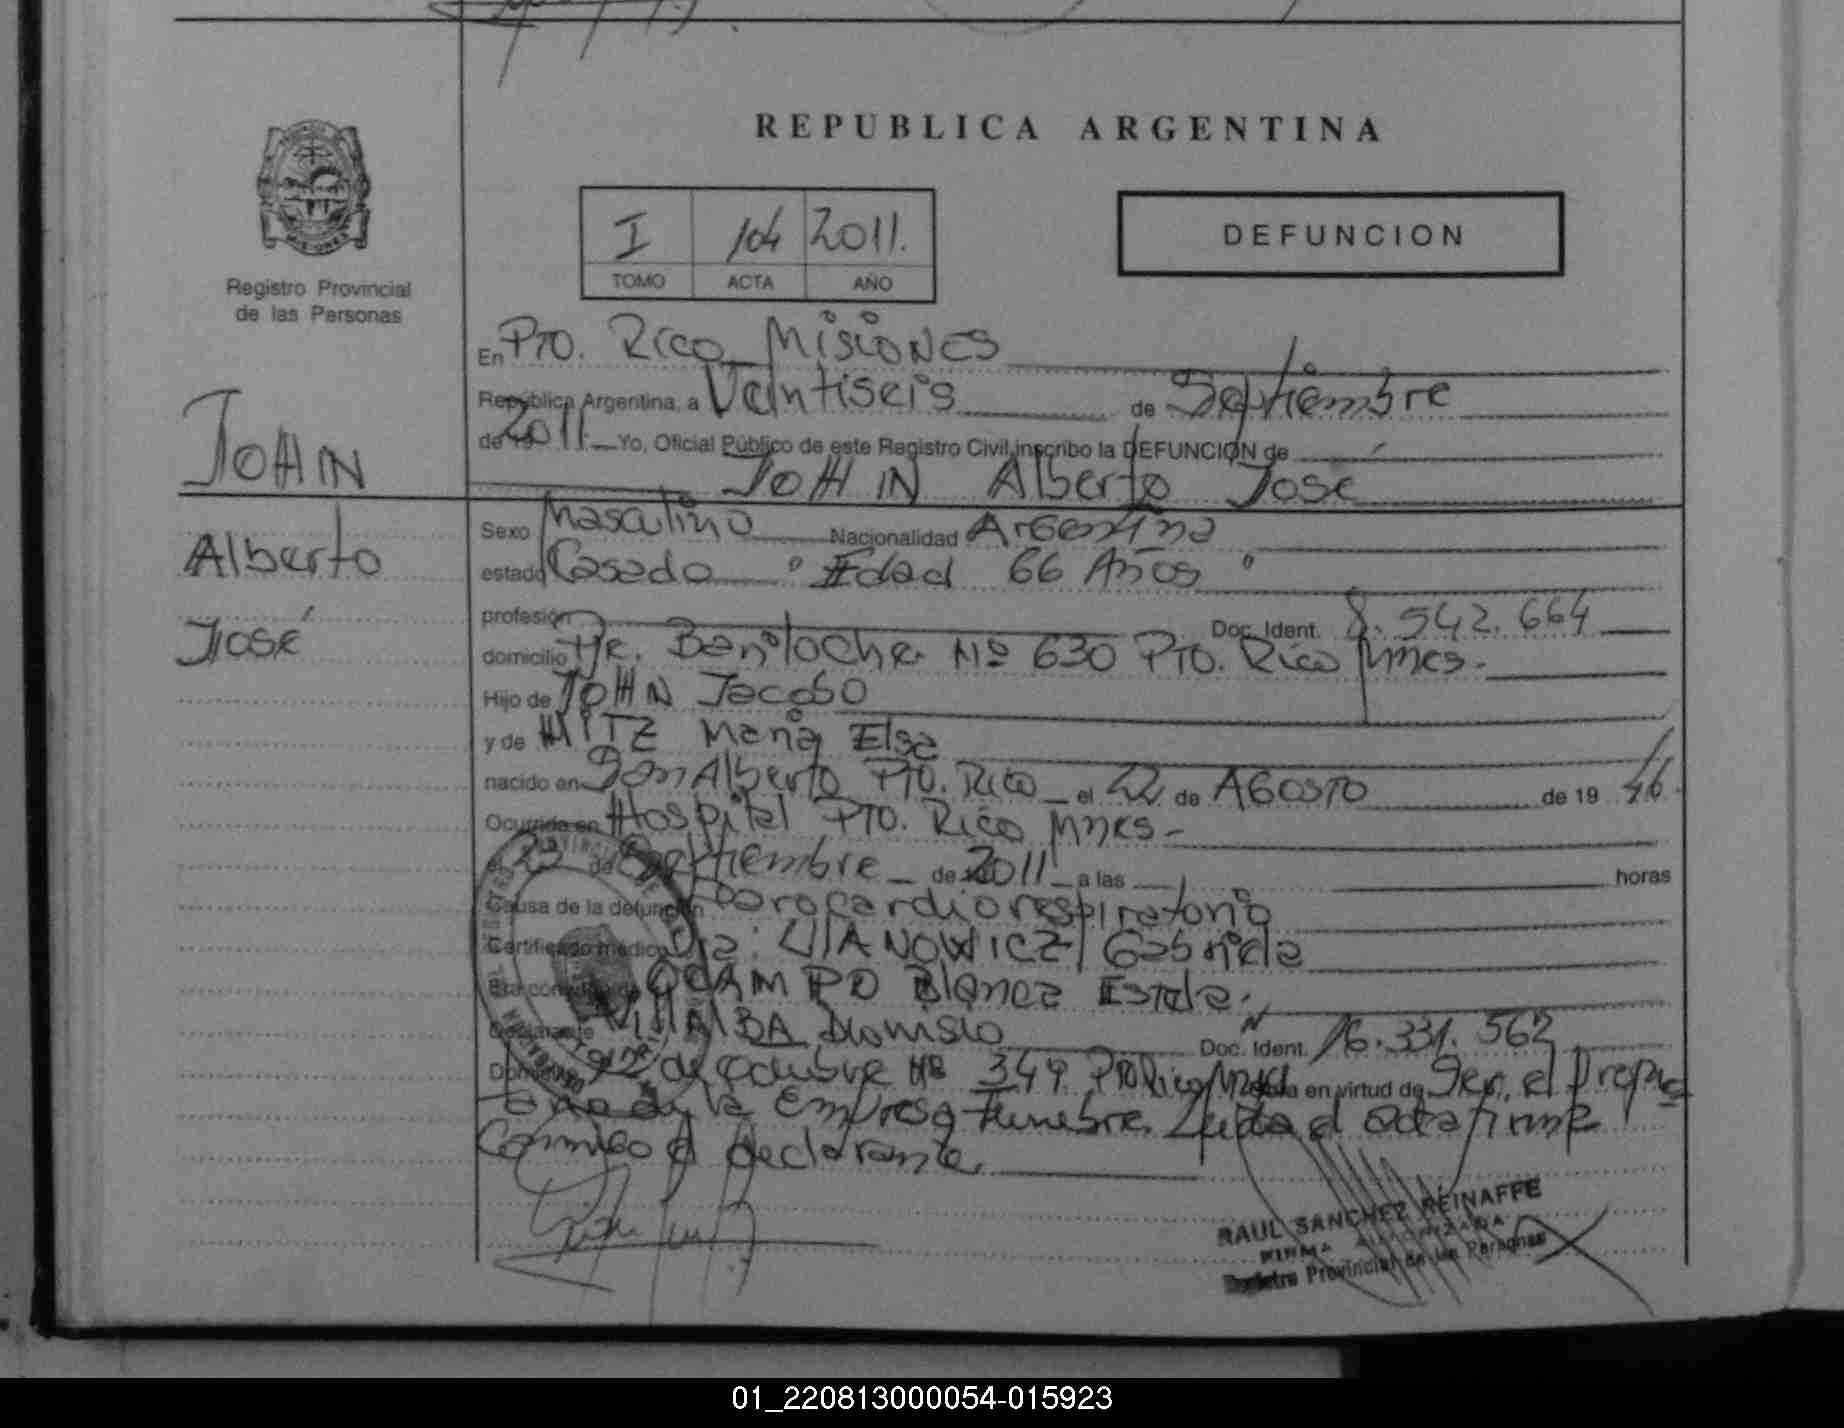 REPUBLICA ARGENTINA
I 104 2011.
TOMO ACTA AÑO
DEFUNCION
Registro Provincial
de las Personas
En Pto. Rico Misiones
República Argentina, a Veintiseis de Septiembre
de 2011. Yo, Oficial Público de este Registro Civil inscribo la DEFUNCION de
JOHN
JOHN Alberto José
Alberto
José
Sexo Masculino Nacionalidad Argentina
estado Casado " Edad 66 Años "
profesión Doc. Ident. 8.542.664
domicilio Nº 630 Pto. Rico Mnes.
Hijo de JOHN Jacobo
y de HITZ María Elsa
nacido en San Alberto Pto. Rico el 22 de AGOSTO de 19 46.
Ocurrida en Hospital Pto. Rico Mnes.
de Septiembre de 2011 a las horas
Causa de la defunción Parocardiorespiratorio
Certificado médico Dra: Gabriela
Era OCAMPO Blanca Estela.
Declarante VILLALBA Dionisio Doc. Ident. 16.331.562
12 de octubre Nº 349 Pto Rico en virtud de Ser el Propie
de la Empresa Funebre. Leida el acta firma
Conmigo el declarante.
RAUL SANCHEZ REINAFFE
FIRMA AUTORIZADA
Registro Provincial de las Personas
01_220813000054-015923